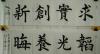 求實創新
韜光養晦